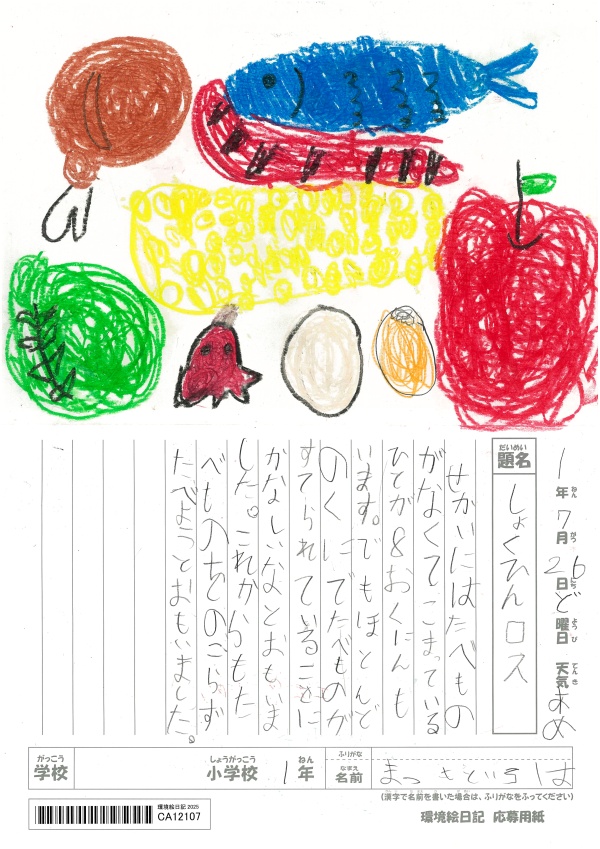 1年7月26日ど曜日 天気あめ
ねん がつ にち ようび てんき
だいめい
題名 しょくひんロス
せかいにはたべもの
がなくてこまっている
ひとが8おくにんも
います。でもほとんど
のくにでたべものが
すてられていることに
かなしいなとおもいま
した。これからもた
べものをのこらず
たべようとおもいました。
がっこう しょうがっこう ねん ふりがな
学校 小学校 1年 なまえ 名前
(漢字で名前を書いた場合は、ふりがなをふってください)
環境絵日記 2025
CA12107
環境絵日記 応募用紙